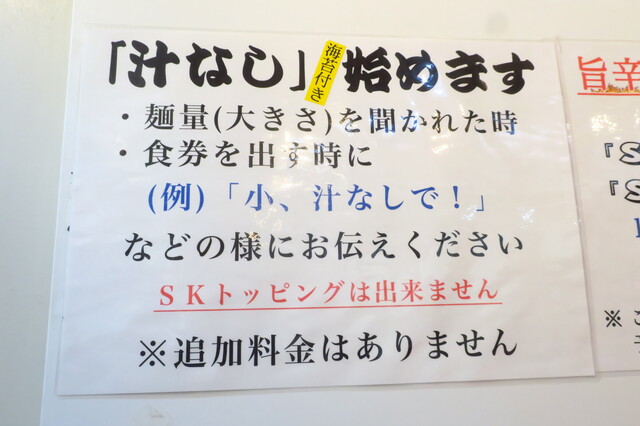 「汁なし」始めます
海苔付き
・麺量(大きさ)を聞かれた時
・食券を出す時に
(例)「小、汁なしで！」
などの様にお伝えください
SKトッピングは出来ません
※追加料金はありません
旨辛
『S
『S
※